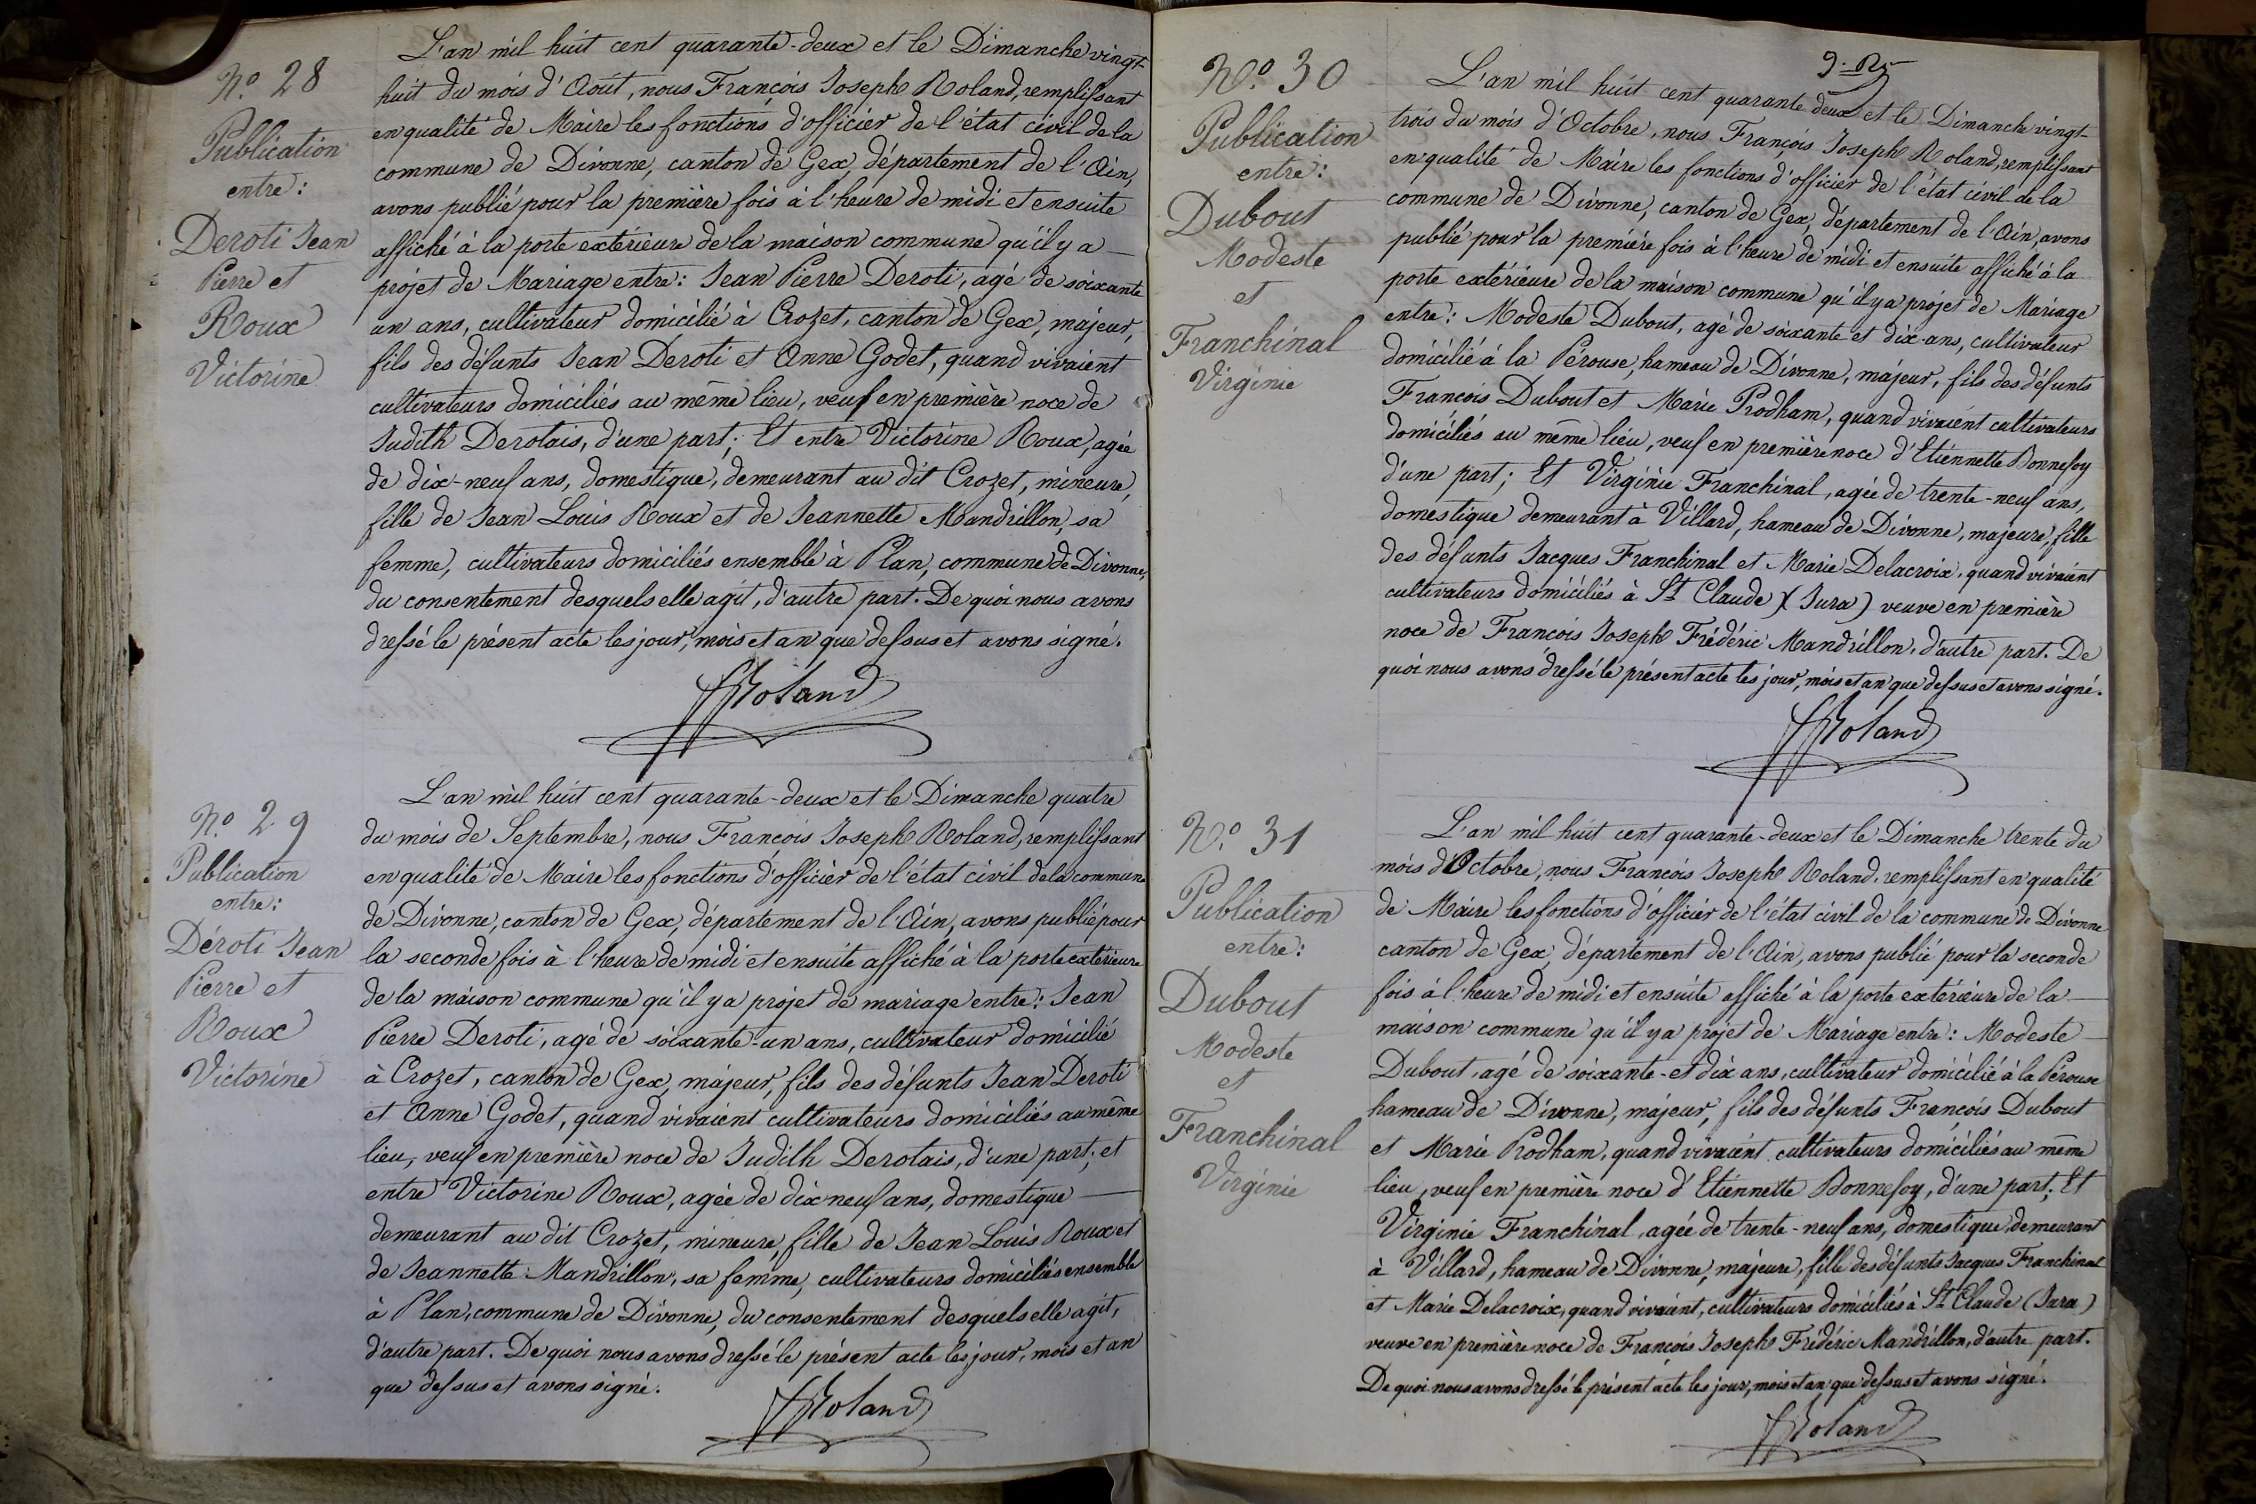 N.º 28
Publication
entre:
Deroti Jean
Pierre et
Roux
Victorine
L'an mil huit cent quarante-deux et le Dimanche vingt
huit du mois d'Août, nous François Joseph Roland, remplissant
en qualité de Maire les fonctions d'officier de l'état civil de la
commune de Divonne, canton de Gex, département de l'Ain,
avons publié pour la première fois à l'heure de midi et ensuite
affiché à la porte extérieure de la maison commune qu'il y a
projet de Mariage entre: Jean Pierre Deroti, agé de soixante
un ans, cultivateur domicilié à Crozet, canton de Gex, majeur,
fils des défunts Jean Deroti et Anne Godet, quand vivaient
cultivateurs domiciliés au même lieu, veuf en première noce de
Judith Derotais, d'une part; Et entre Victorine Roux, agée
de dix-neuf ans, domestique, demeurant au dit Crozet, mineure,
fille de Jean Louis Roux et de Jeannette Mandrillon, sa
femme, cultivateurs domiciliés ensemble à Plan, commune de Divonne,
du consentement desquels elle agit, d'autre part. De quoi nous avons
dressé le présent acte les jour, mois et an que dessus et avons signé.
FJRoland
N.º 29
Publication
entre:
Déroti Jean
Pierre et
Roux
Victorine
L'an mil huit cent quarante-deux et le Dimanche quatre
du mois de Septembre, nous François Joseph Roland, remplissant
en qualité de Maire les fonctions d'officier de l'état civil de la commune
de Divonne, canton de Gex, département de l'Ain, avons publié pour
la seconde fois à l'heure de midi et ensuite affiché à la porte extérieure
de la maison commune qu'il y a projet de mariage entre: Jean
Pierre Deroti, agé de soixante-un ans, cultivateur domicilié
à Crozet, canton de Gex, majeur, fils des défunts Jean Deroti
et Anne Godet, quand vivaient cultivateurs domiciliés au même
lieu, veuf en première noce de Judith Derotais, d'une part; et
entre Victorine Roux, agée de dix neuf ans, domestique
demeurant au dit Crozet, mineure, fille de Jean Louis Roux et
de Jeannette Mandrillon, sa femme, cultivateurs domiciliés ensemble
à Plan, commune de Divonne, du consentement desquels elle agit,
d'autre part. De quoi nous avons dressé le présent acte les jour, mois et an
que dessus et avons signé.
FJRoland
N.º 30
Publication
entre:
Dubout
Modeste
et
Franchinal
Virginie
L'an mil huit cent quarante deux et le Dimanche vingt
trois du mois d'Octobre, nous François Joseph Roland, remplissant
en qualité de Maire les fonctions d'officier de l'état civil de la
commune de Divonne, canton de Gex, département de l'Ain, avons
publié pour la première fois à l'heure de midi et ensuite affiché à la
porte extérieure de la maison commune qu'il y a projet de Mariage
entre: Modeste Dubout, agé de soixante et dix ans, cultivateur
domicilié à la Pérouse, hameau de Divonne, majeur, fils des défunts
François Dubout et Marie Prodham, quand vivaient cultivateurs
domiciliés au même lieu, veuf en première noce d'Etiennette Bonnefoy
d'une part; Et Virginie Franchinal, agée de trente-neuf ans,
domestique demeurant à Villard, hameau de Divonne, majeure, fille
des défunts Jacques Franchinal et Marie Delacroix, quand vivaient
cultivateurs domiciliés à St Claude (Jura) veuve en première
noce de François Joseph Frédéric Mandrillon, d'autre part. De
quoi nous avons dressé le présent acte les jour, mois et an que dessus et avons signé.
FJRoland
N.º 31
Publication
entre:
Dubout
Modeste
et
Franchinal
Virginie
L'an mil huit cent quarante-deux et le Dimanche trente du
mois d'Octobre, nous François Joseph Roland, remplissant en qualité
de Maire les fonctions d'officier de l'état civil de la commune de Divonne
canton de Gex, département de l'Ain, avons publié pour la seconde
fois à l'heure de midi et ensuite affiché à la porte extérieure de la
maison commune qu'il y a projet de Mariage entre: Modeste
Dubout, agé de soixante-et dix ans, cultivateur domicilié à la Pérouse
hameau de Divonne, majeur, fils des défunts François Dubout
et Marie Prodham, quand vivaient cultivateurs domiciliés au même
lieu, veuf en première noce d'Etiennette Bonnefoy, d'une part; Et
Virginie Franchinal, agée de trente-neuf ans, domestique, demeurant
à Villard, hameau de Divonne, majeure, fille des défunts Jacques Franchinal
et Marie Delacroix, quand vivaient, cultivateurs domiciliés à St Claude (Jura)
veuve en première noce de François Joseph Frédéric Mandrillon, d'autre part.
De quoi nous avons dressé le présent acte les jour, mois et an que dessus et avons signé.
FJRoland